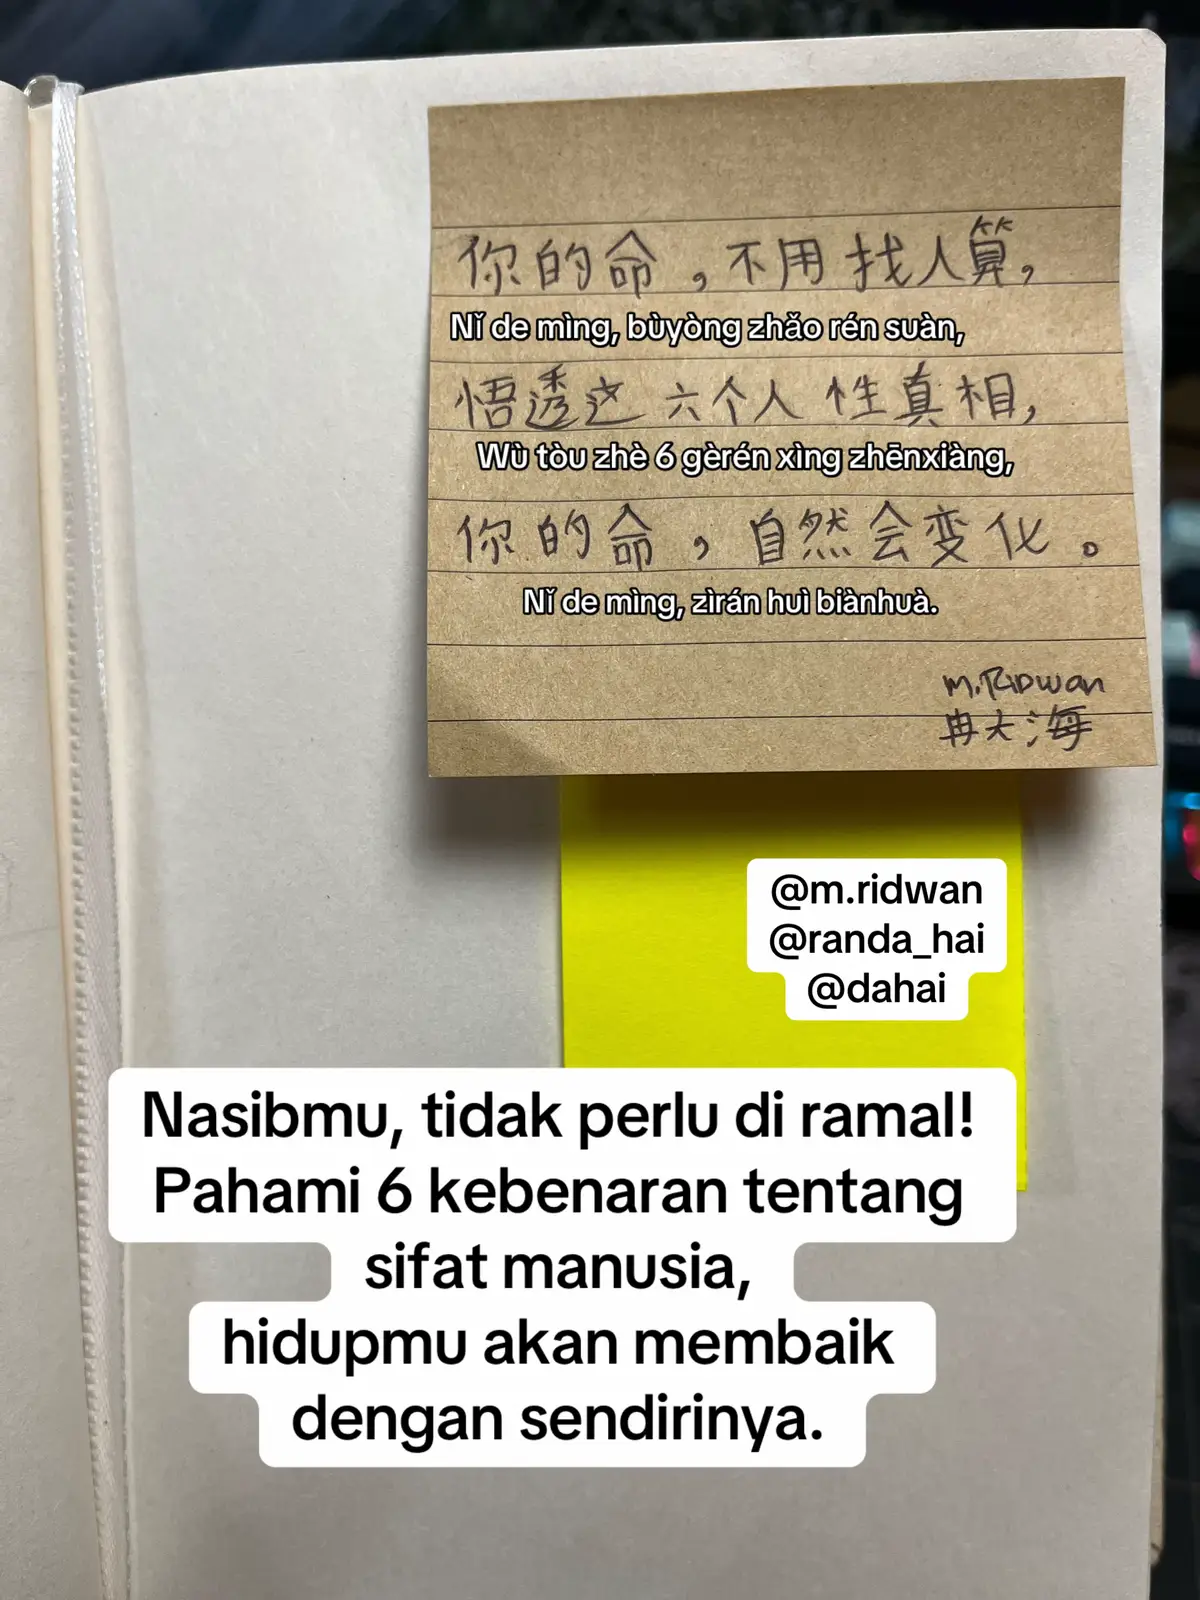 你的命，不用找人算，
Nǐ de mìng, bùyòng zhǎo rén suàn,
悟透这六个人性真相，
Wù tòu zhè 6 gèrén xìng zhēnxiàng,
你的命，自然会变化。
Nǐ de mìng, zìrán huì biànhuà.
M.RIDWan
冉大海
@m.ridwan
@randa_hai
@dahai
Nasibmu, tidak perlu di ramal!
Pahami 6 kebenaran tentang
sifat manusia,
hidupmu akan membaik
dengan sendirinya.